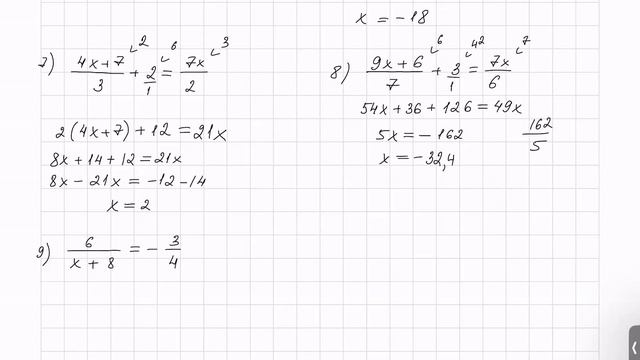 x = -18
7) (4x+7)/3 + 2/1 = 7x/2
2 6 3
2(4x+7)+12=21x
8x+14+12=21x
8x-21x=-12-14
x=2
8) (9x+6)/7 + 3/1 = 7x/6
6 42 7
54x+36+126=49x
5x=-162
162/5
x=-32,4
9) 6/(x+8) = -3/4